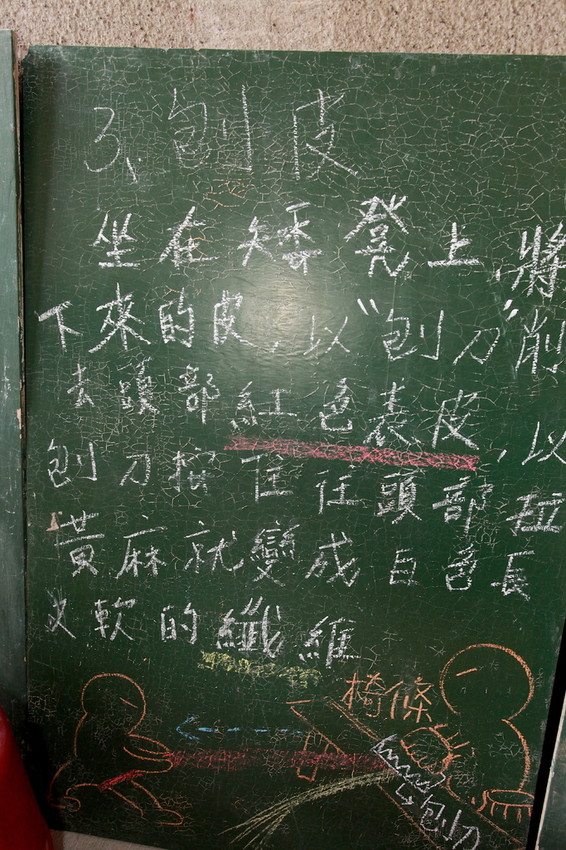 3、刨皮
坐在矮凳上,將
下來的皮,以"刨刀"削
去頭部紅色表皮,以
刨刀按住往頭部拉
黃麻就變成白色長
又軟的纖維
椅條
刨刀